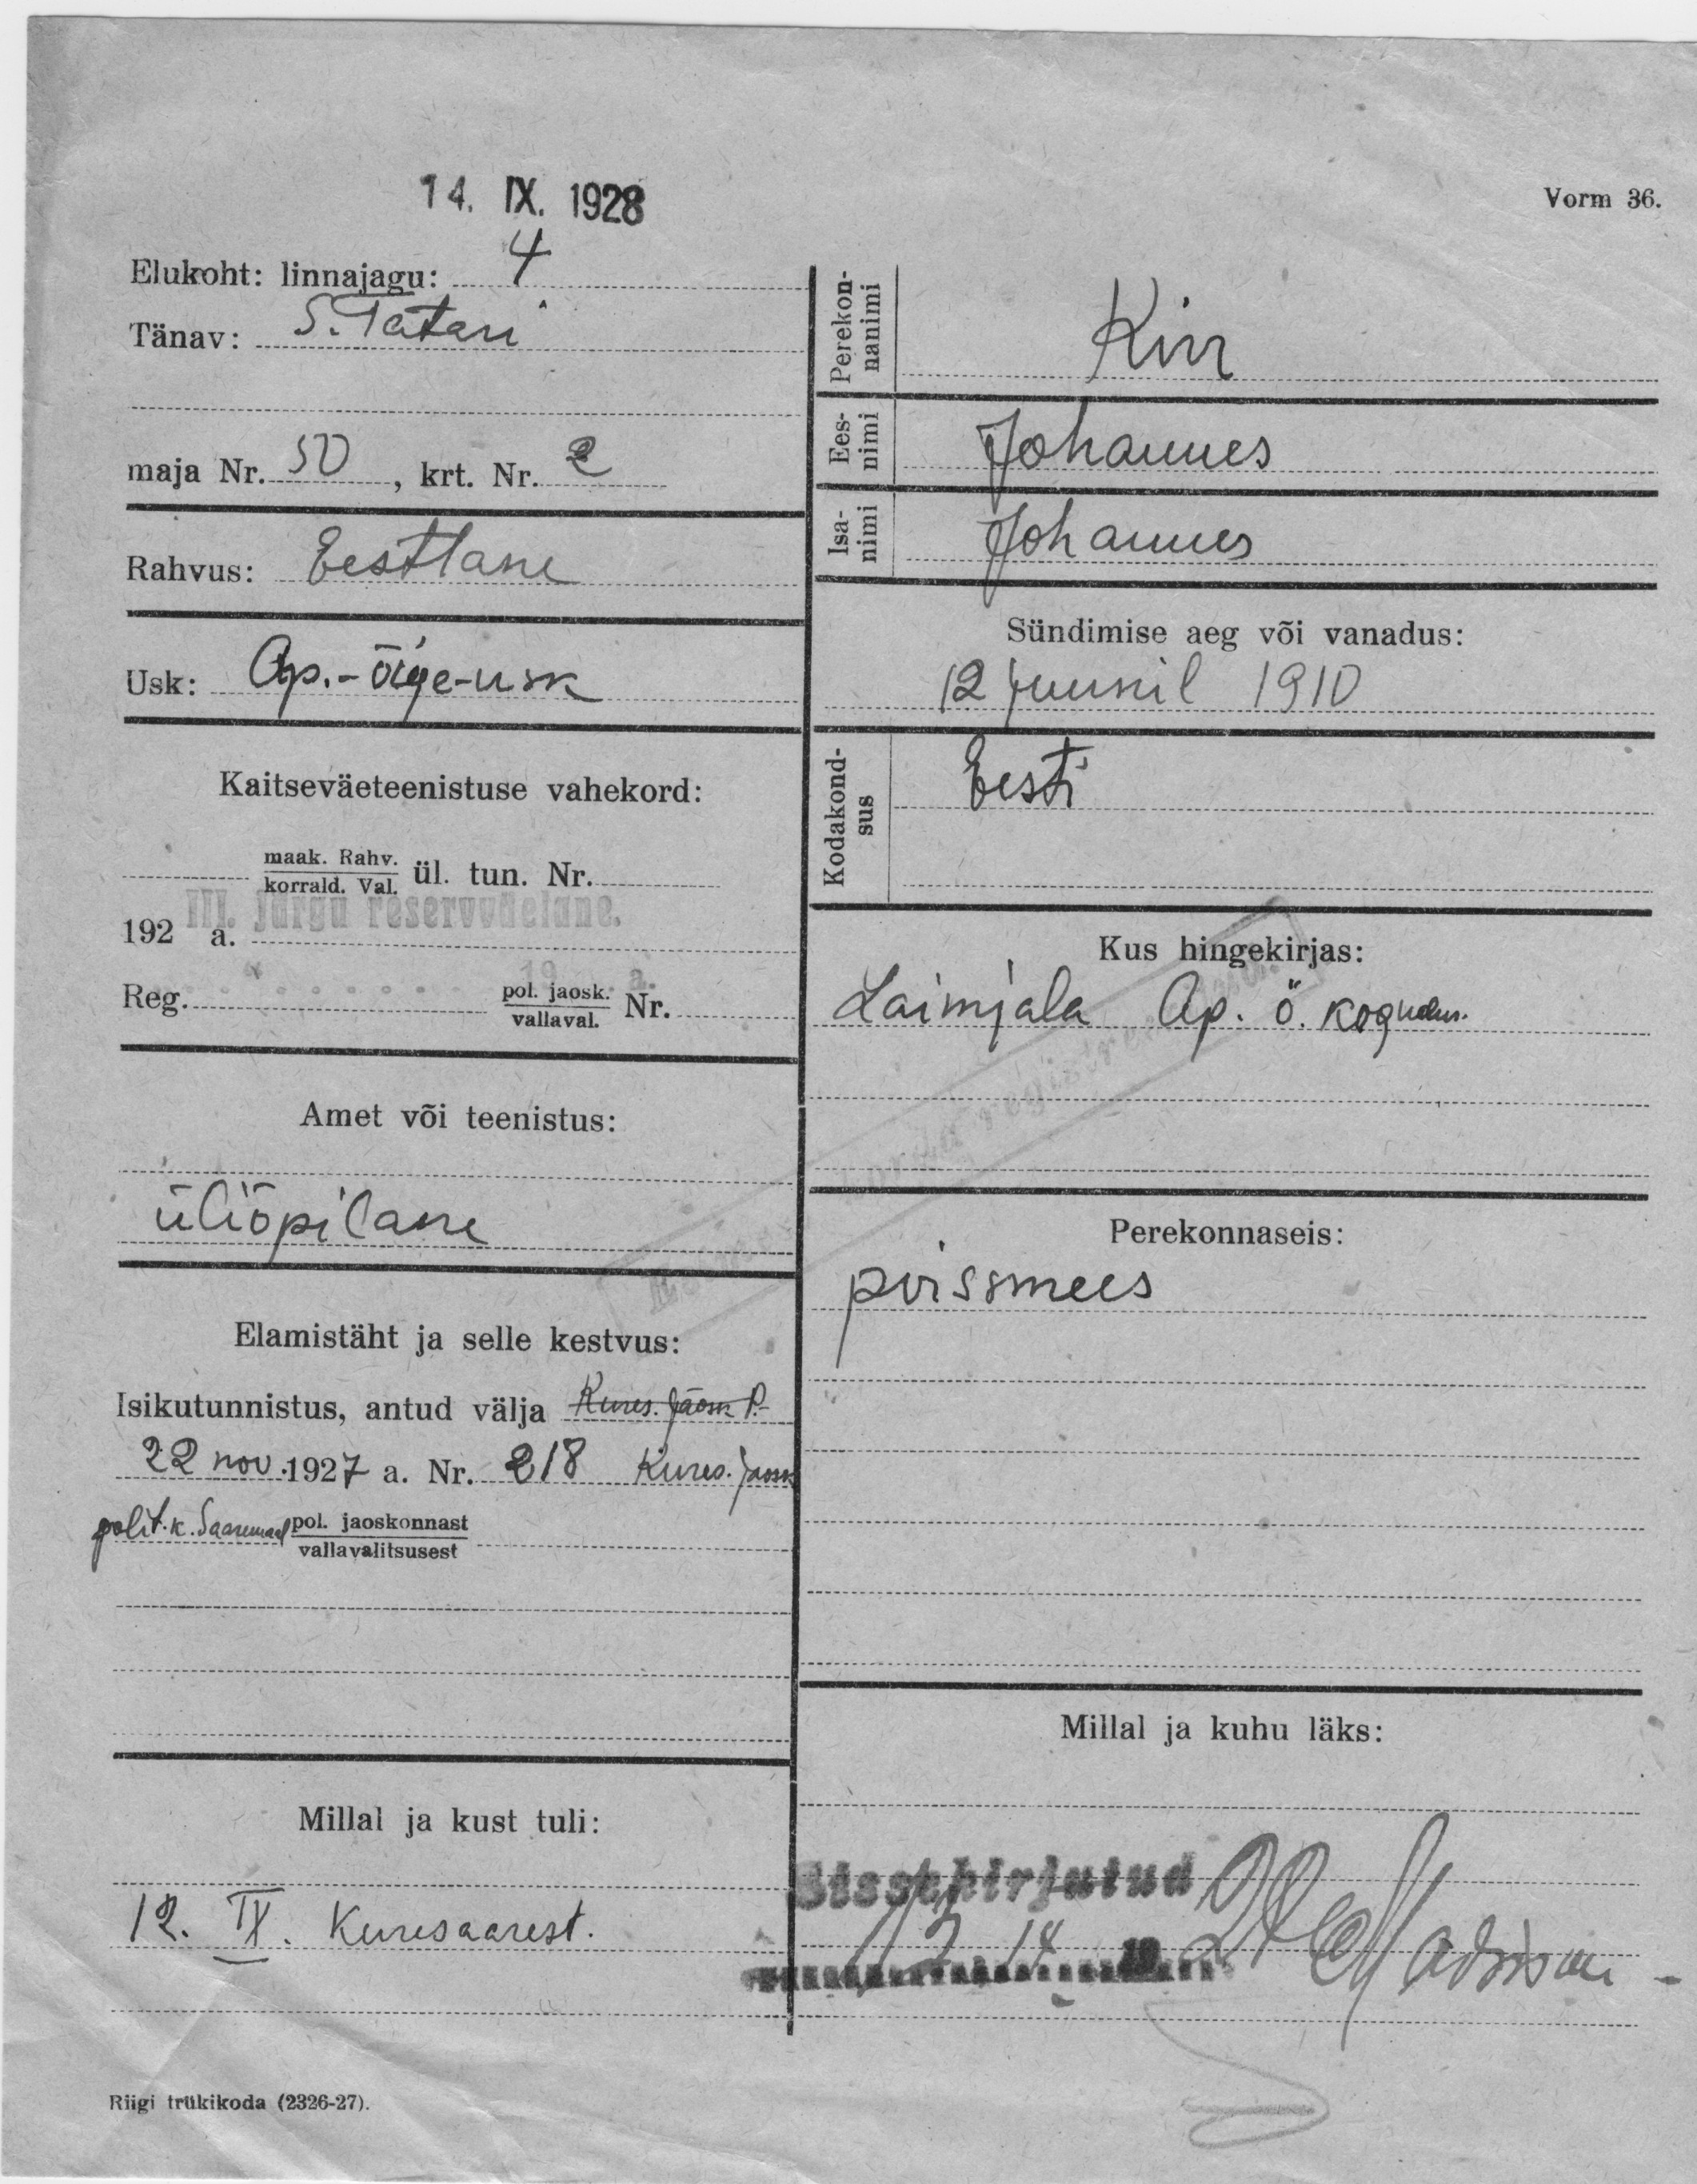 14. IX. 1928
Vorm 36.
Elukoht: linnajagu: 4
Tänav: S. Tatari
maja Nr. 50, krt. Nr. 2
Rahvus: Eestlane
Usk: Ap.-õige-usk
Kaitseväeteenistuse vahekord:
maak. Rahv.
korrald. Val. ül. tun. Nr.
III. järgu reservväelane.
192 a.
19 a.
Reg. pol. jaosk. Nr.
vallaval.
Amet või teenistus:
üliõpilane
Elamistäht ja selle kestvus:
Isikutunnistus, antud välja Kures. jaosk P.
22 nov. 1927 a. Nr. 218 Kures. jaosk
polit. k. Saaremaal pol. jaoskonnast
vallavalitsusest
Millal ja kust tuli:
12. IX. Kuresaarest.
Riigi trükikoda (2326-27).
Perekon-
nanimi
Kirr
Ees-
nimi
Johannes
Isa-
nimi
Johannes
Sündimise aeg või vanadus:
12 juunil 1910
Kodakond-
sus
Eesti
Kus hingekirjas:
Laimjala Ap. õ. kogudus.
Perekonnaseis:
poissmees
Millal ja kuhu läks:
Sissekirjutud
19